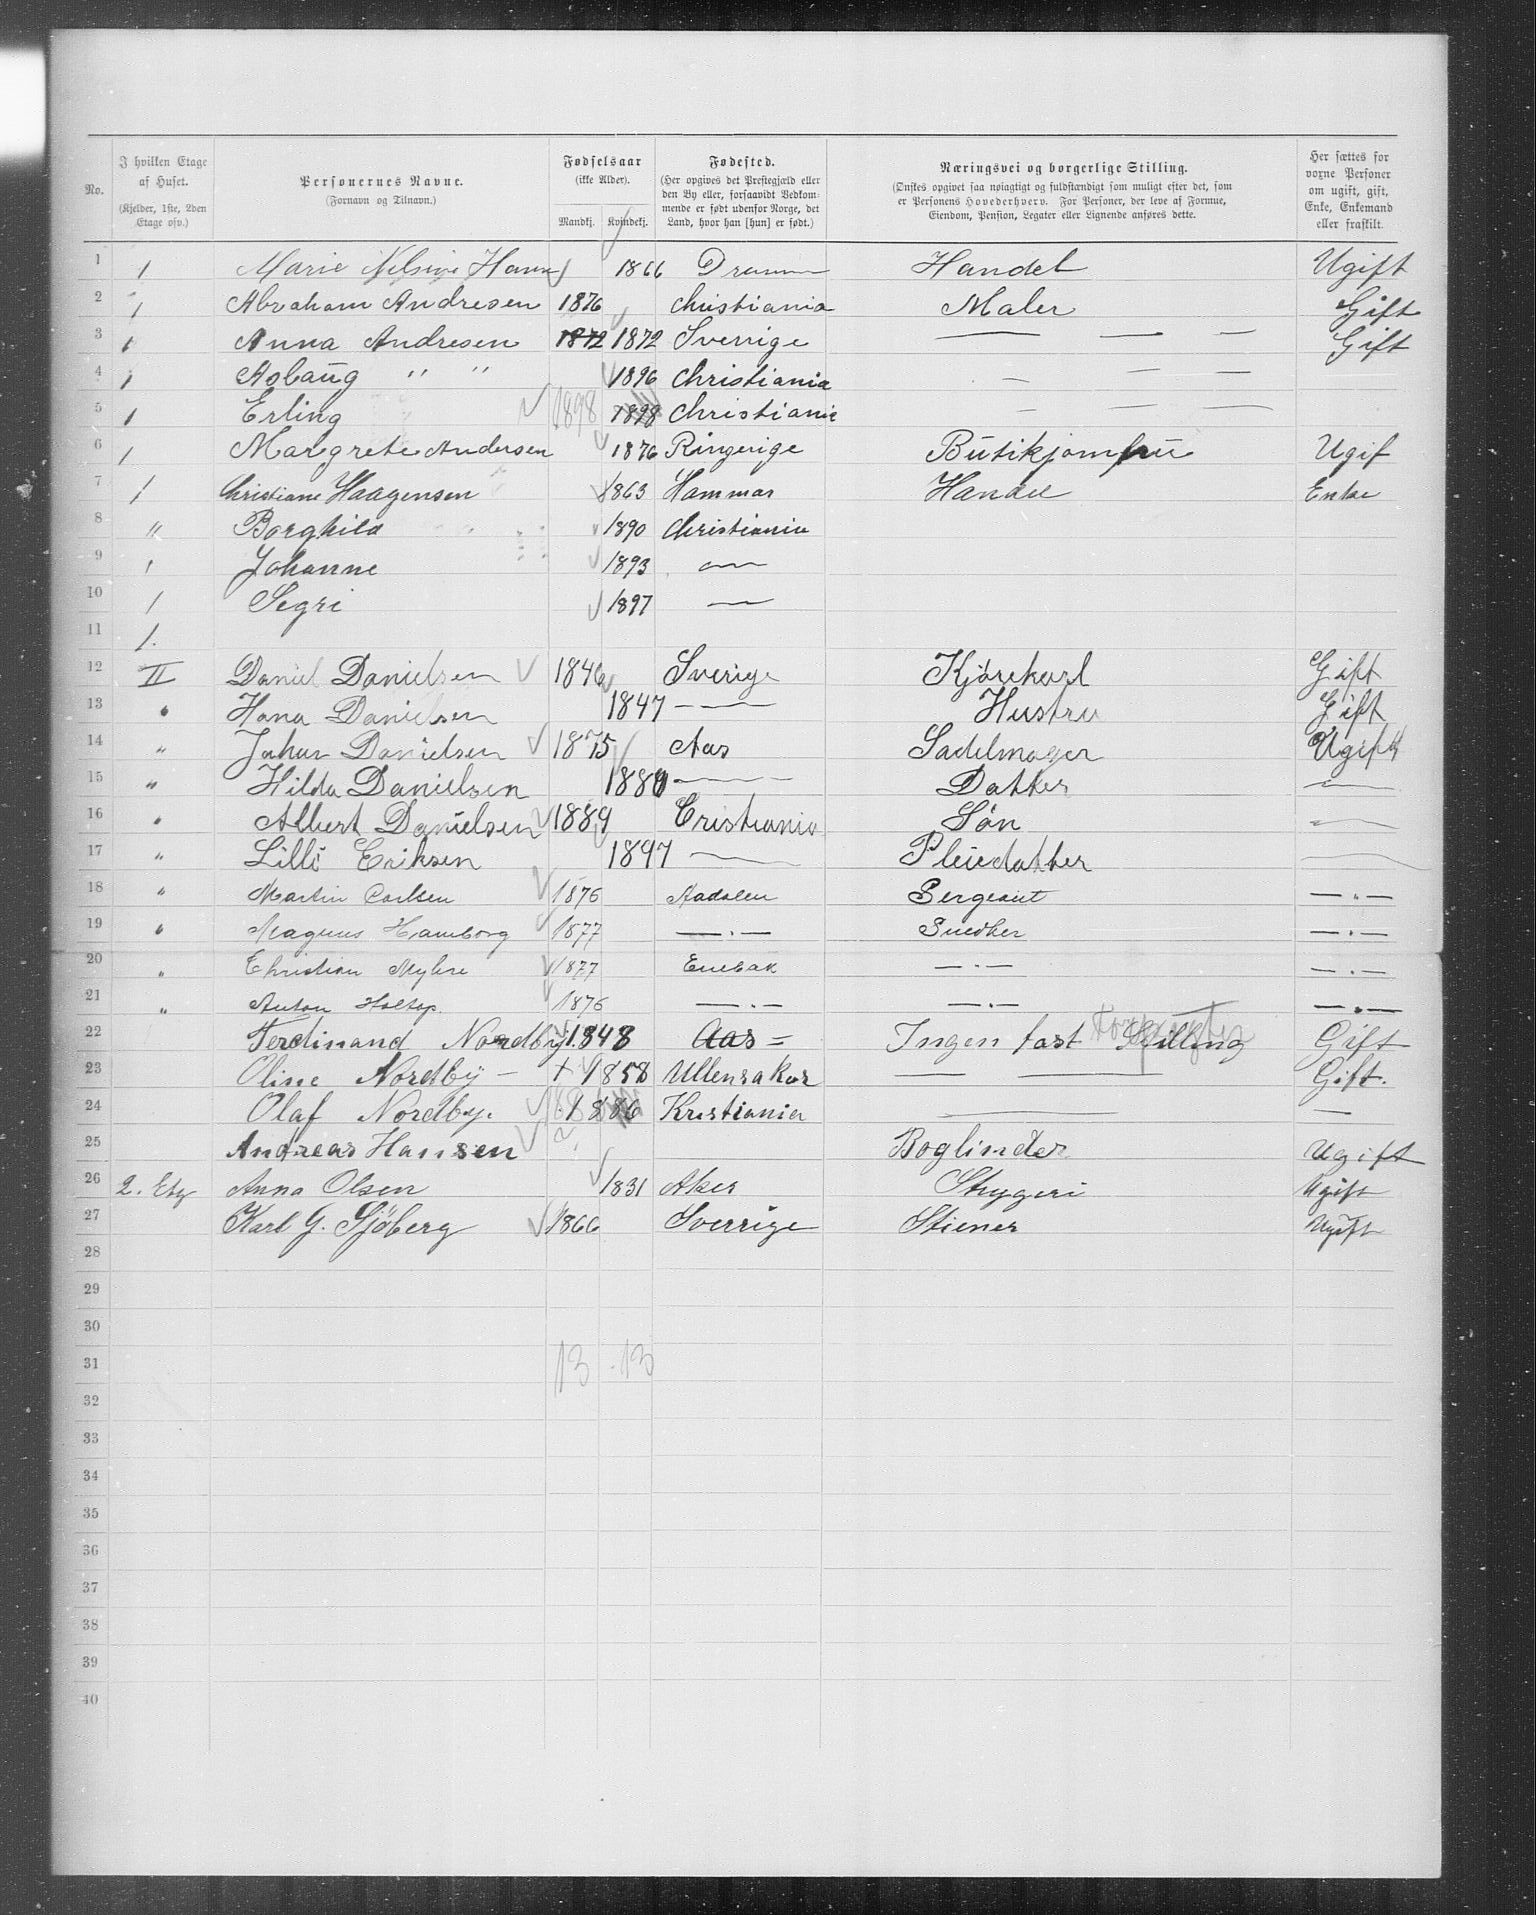 No. I hvilken Etage af Huset. (Kjelder, 1ste, 2den Etage osv.) Personernes Navne. (Fornavn og Tilnavn.) Fødselsaar (ikke Alder). Mandkj. Kvindekj. Fødested. (Her opgives det Prestegjæld eller den By eller, forsaavidt Vedkommende er født udenfor Norge, det Land, hvor han [hun] er født.) Næringsvei og borgerlige Stilling. (Ønskes opgivet saa nøiagtigt og fuldstændigt som muligt efter det, som er Personens Hovederhverv. For Personer, der leve af Formue, Eiendom, Pension, Legater eller Lignende anføres dette. Her sættes for voxne Personer om ugift, gift, Enke, Enkemand eller fraskilt.
1 1 Marie Nelsine 1866 Dramm Handel Ugift
2 1 Abraham Andresen 1876 Christiania Maler Gift
3 1 Anna Andresen 1872 1872 Sverrige — — — Gift
4 1 Asbaug " " 1896 Christiania — — —
5 1 Erling 1898 1898 Christiania — — —
6 1 Margrete Andersen 1876 Ringerige Butikjomfru Ugif
7 1 Christiane Haagensen 1863 Hammar Handel Enke
8 " Borghild 1890 Christiania
9 1 Johanne 1893 —
10 1 Segri 1897 —
11 1.
12 II Daniel Danielsen 1846 Sverige Kjørekarl Gift
13 " Hana Danielsen 1847 — Hustru Gift
14 " Johan Danielsen 1875 Aas Sadelmager Ugift
15 " Hilda Danielsen 1880 — Datter —
16 " Albert Danielsen 1889 Cristiania Søn —
17 " Lilli Eriksen 1897 — Pleiedatter —
18 " Martin Carlsen 1876 Aadalen Sergeant — " —
19 " Magnus Hamborg 1877 — " — Snedker — " —
20 " Christian Myhre 1877 Enebak — " — — " —
21 " Anton Holtop 1876 — " — — " — — " —
22 Ferdinand Nordby 1848 Aas = Ingen fast Stilling Gift
23 Oline Nordby — + 1858 Ullensaker — — Gift.
24 Olaf Nordby. 1886 Kristiania — —
25 Andreas Hansen ? Boglinder Ugift
26 2. Etg Anna Olsen 1831 Aker Strygeri Ugift
27 Karl G. Sjöberg 1866 Sverrige Stiener Ugift
28
29
30
31 13 13
32
33
34
35
36
37
38
39
40